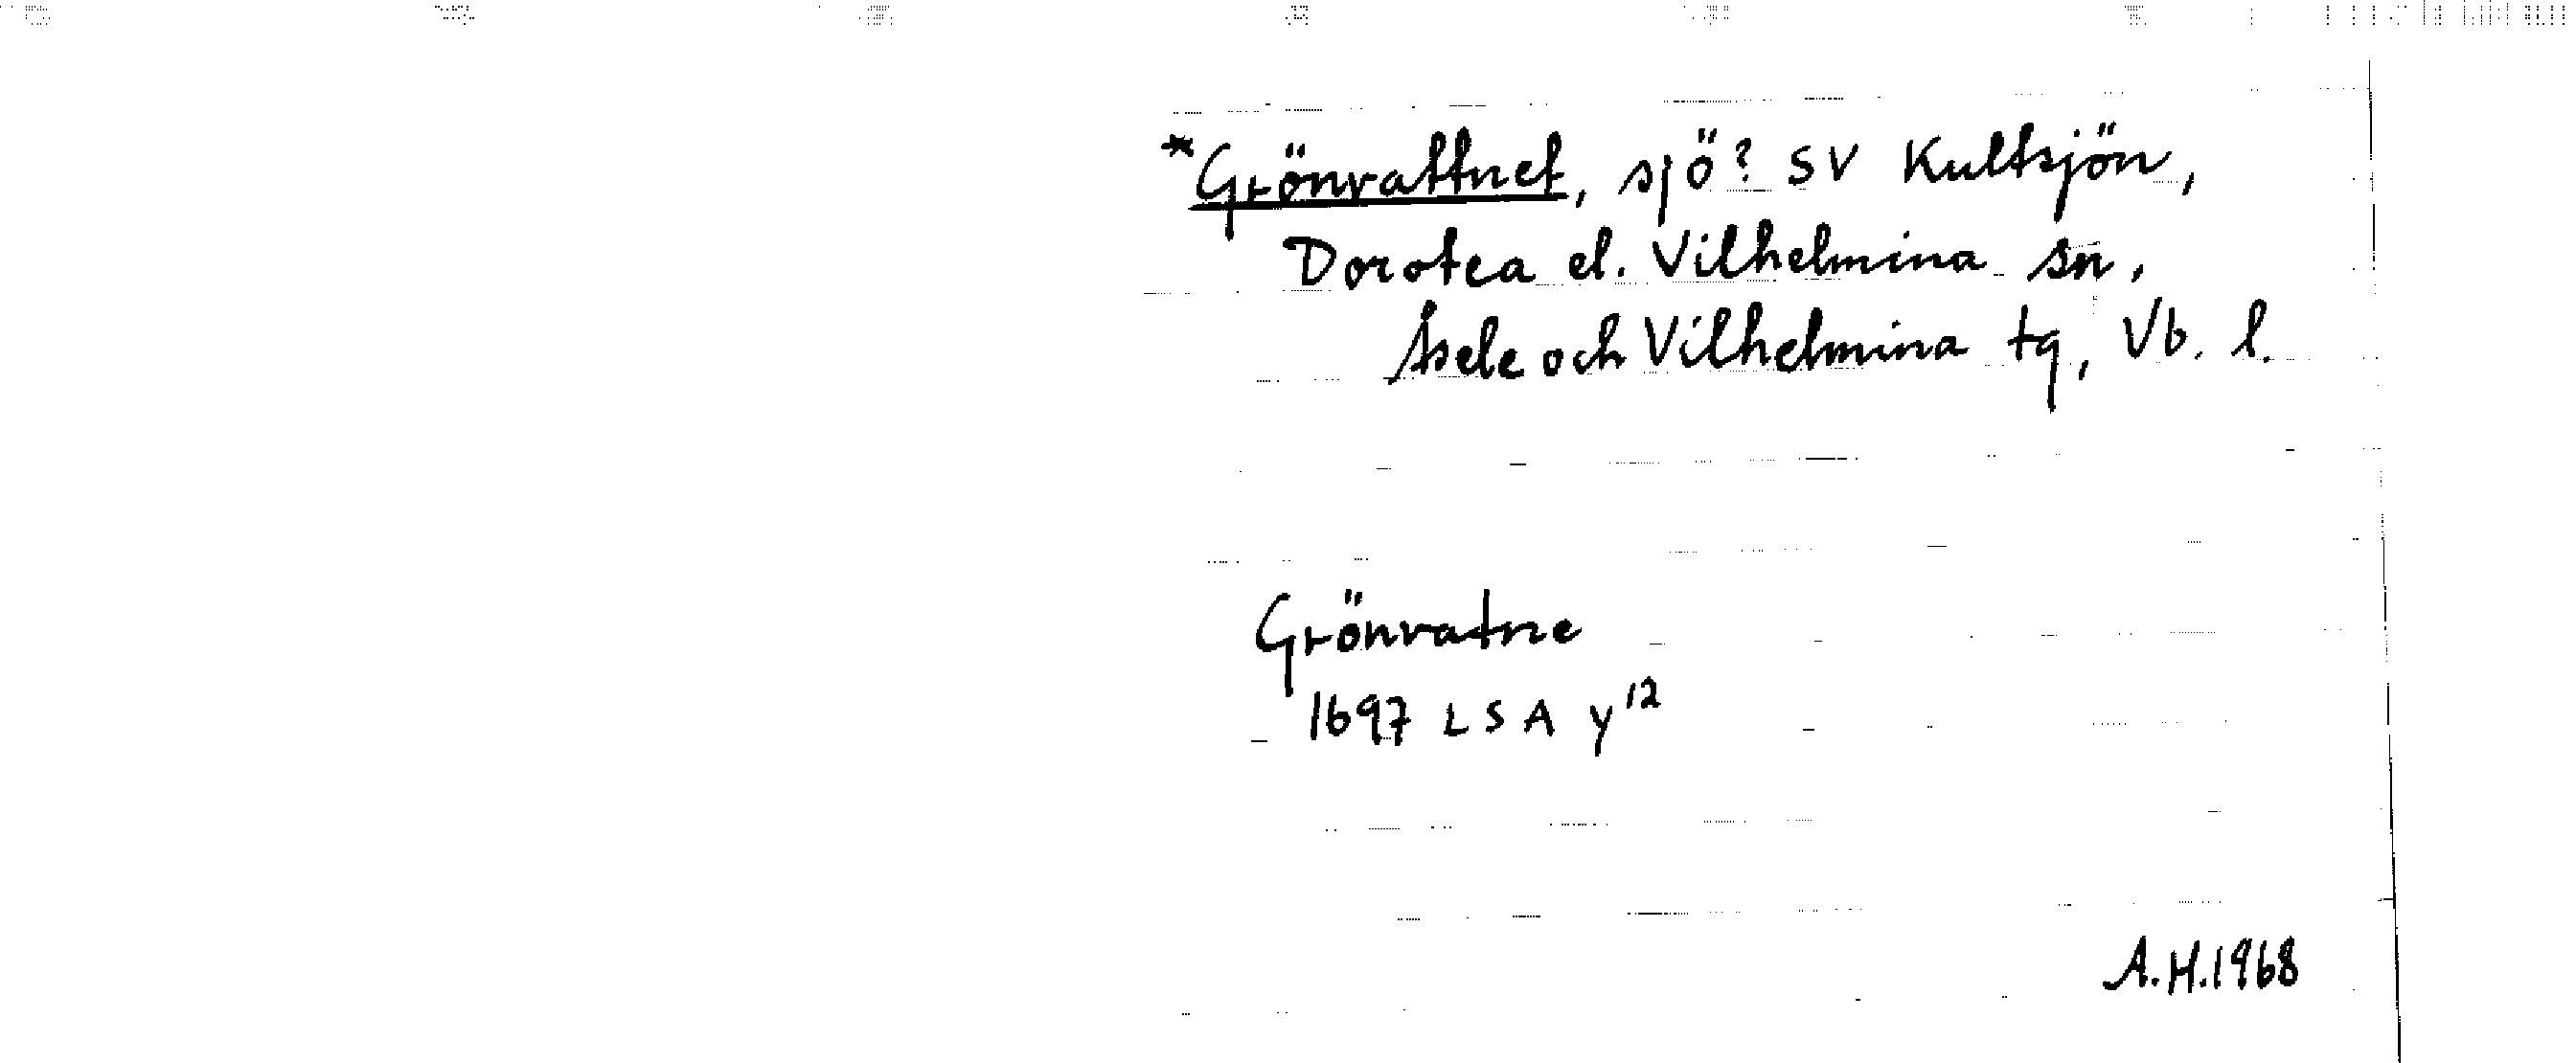 *Grönvattnet, sjö? SV Kultsjön,
Dorotea el. Vilhelmina sn,
Åsele och Vilhelmina tg, Vb. l.
Grönvatne
1697 LSA y¹²
A.H.1968